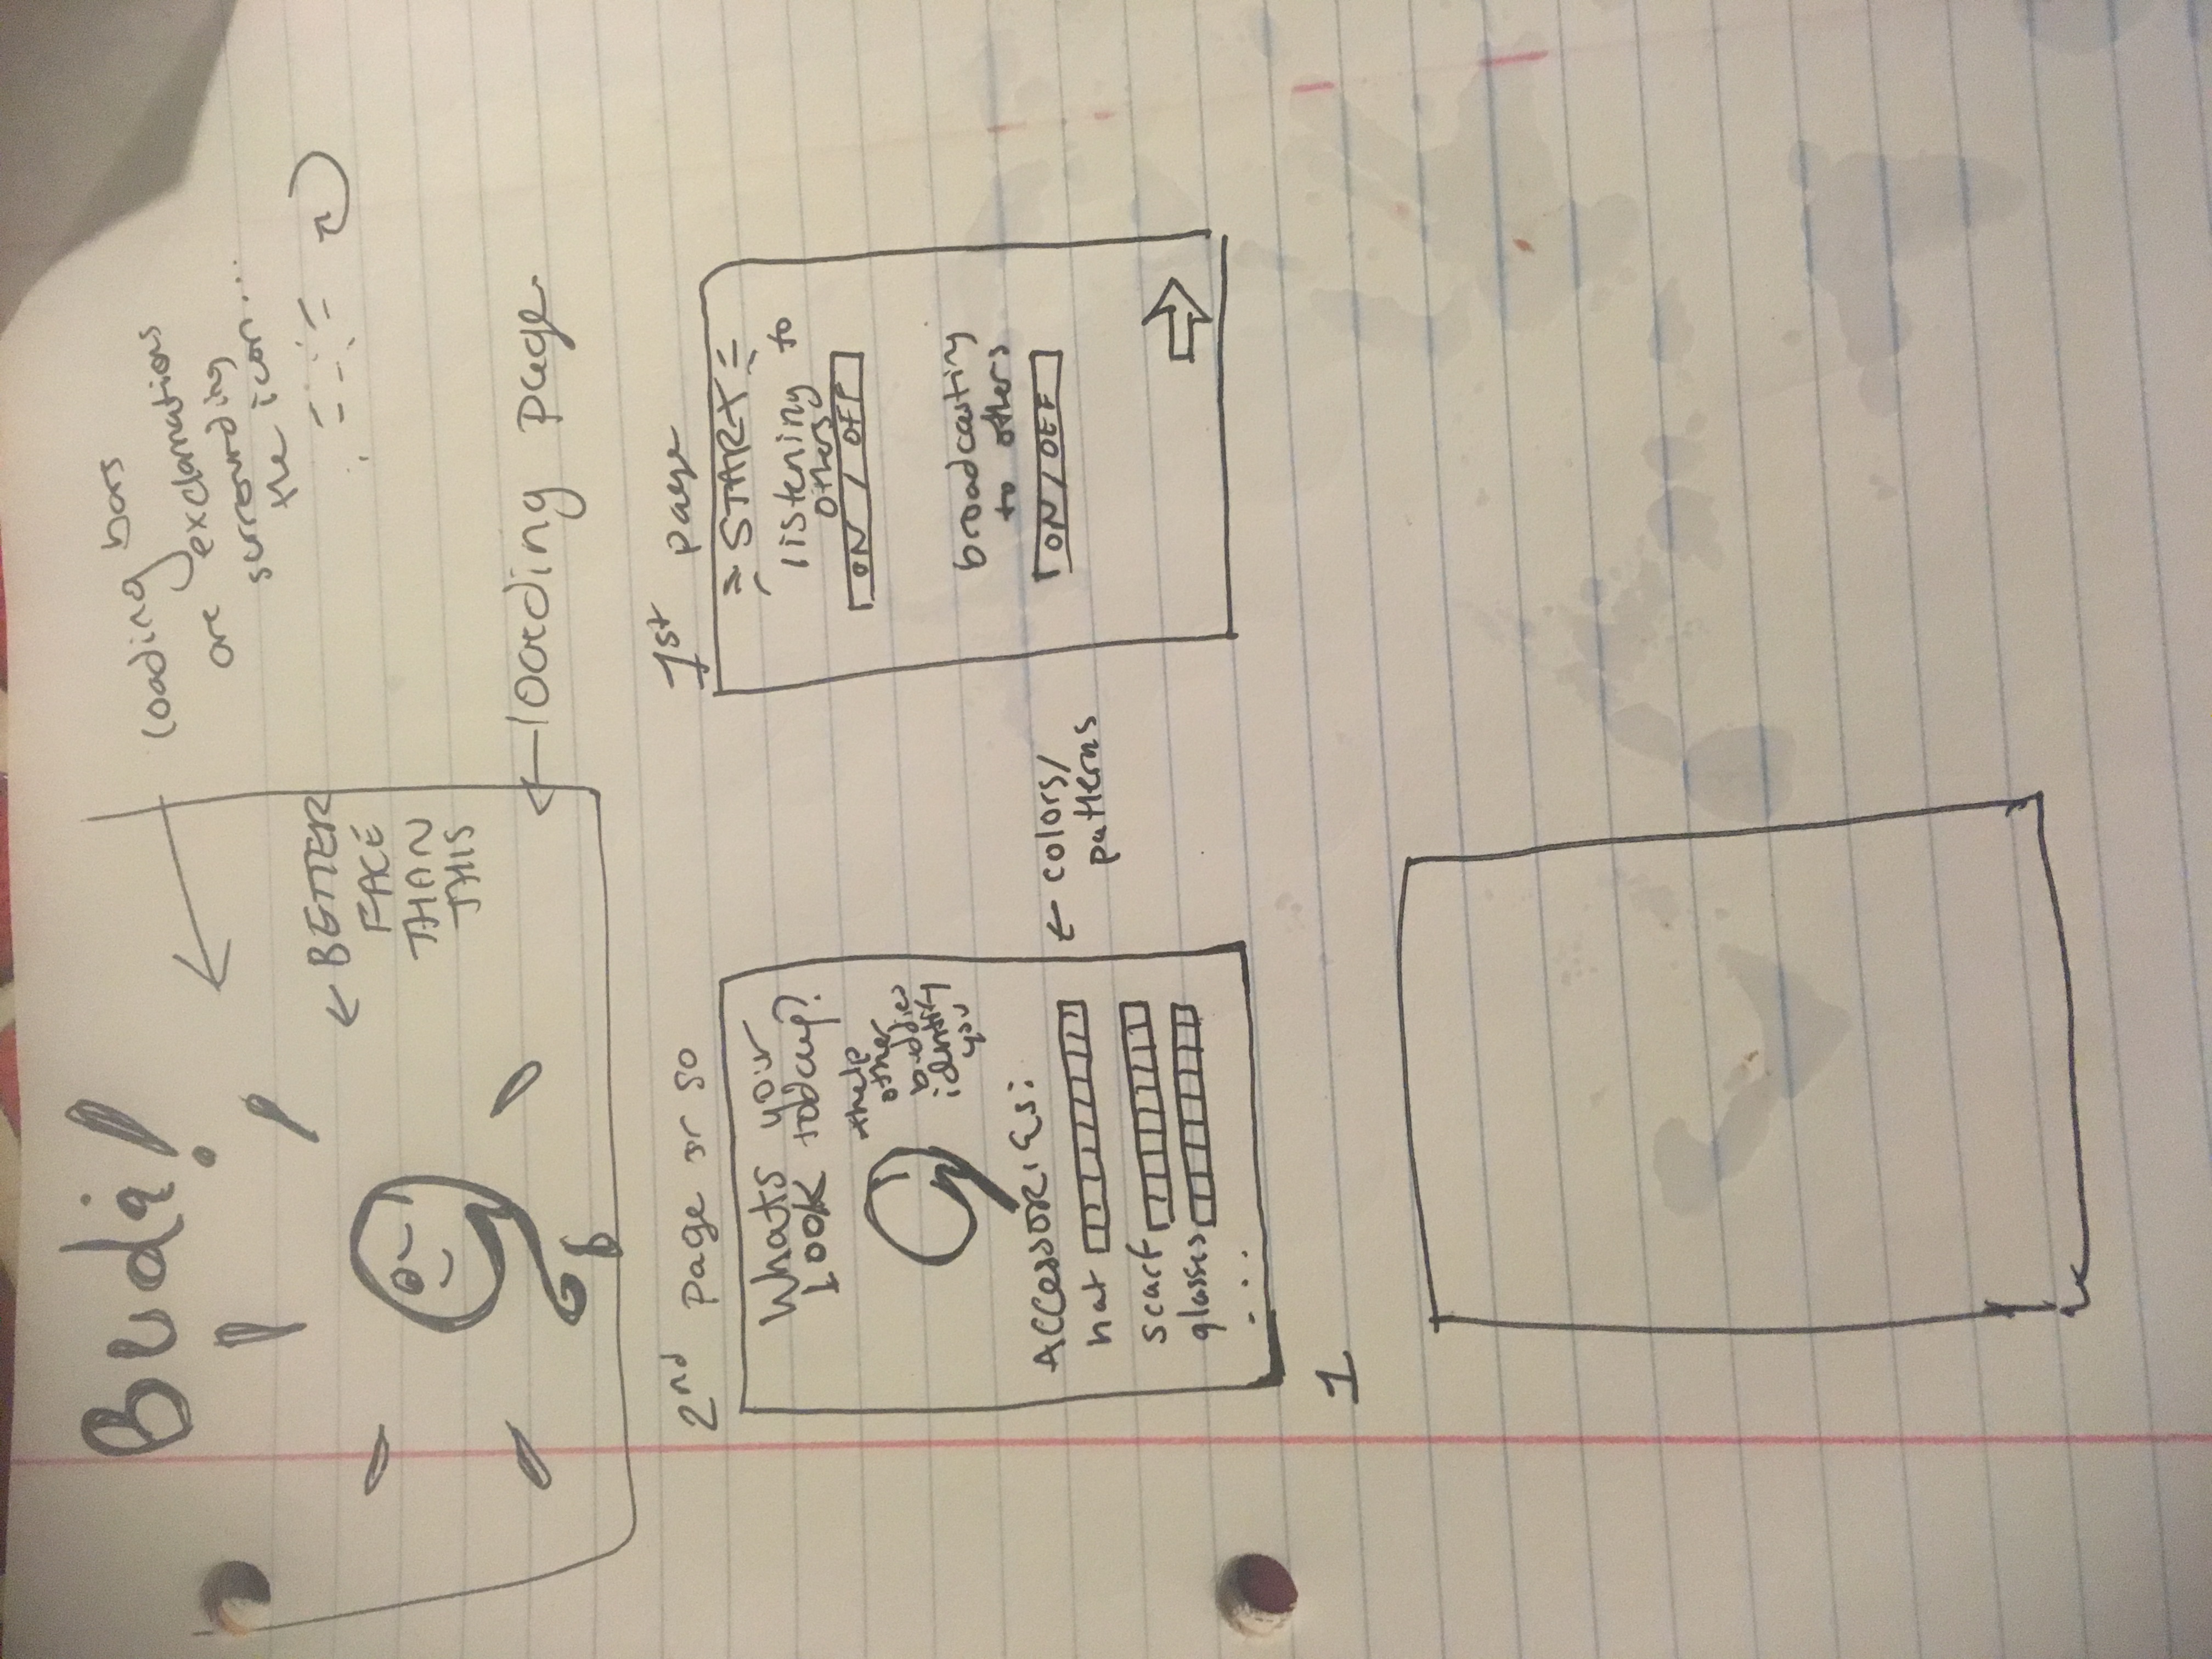 Budi!
loading bars
are exclamations
surrounding
the icon...
← BETTER
FACE
THAN
THIS
← loading page
2nd page or so
Whats your
look today?
*help
other
buddies
identify
you
Accessories:
hat
scarf
glasses
...
← colors/
patterns
1st page
START
listening to
others
ON / OFF
broadcasting
to others
ON / OFF
1